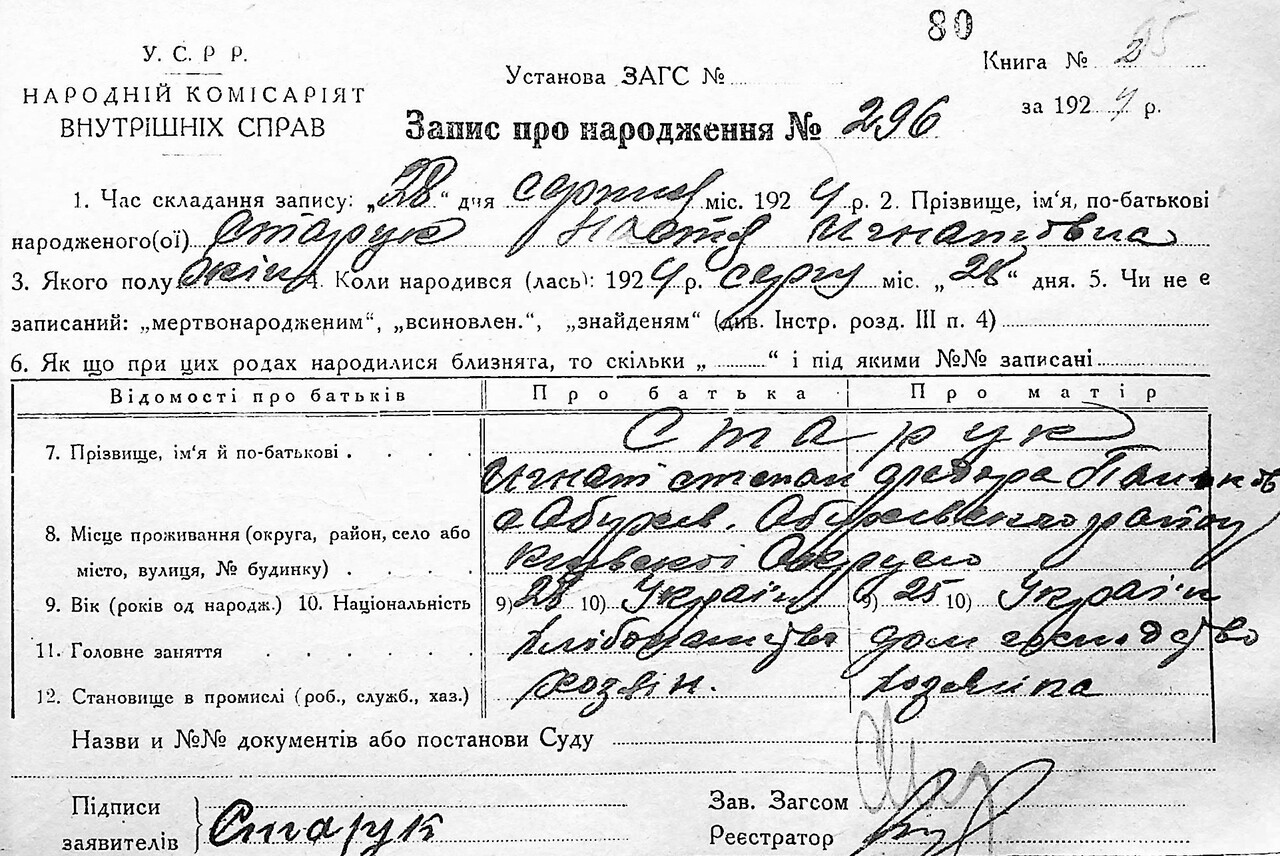 80
У. С. Р Р.
НАРОДНІЙ КОМІСАРІЯТ
ВНУТРІШНІХ СПРАВ
Установа ЗАГС №
Книга № 25
за 1924 р.
Запис про народження № 296
1. Час складання запису: „28" дня серпня міс. 1924 р. 2. Прізвище, ім'я, по-батькові
народженого(ої) Старук Настя Игнатовна
3. Якого полу жін 4. Коли народився (лась): 1924 р. серпу міс. „28" дня. 5. Чи не є
записаний: „мертвонародженим", „всиновлен.", „знайденям" (див. Інстр. розд. III п. 4)
6. Як що при цих родах народилися близнята, то скільки „ " і під якими №№ записані
Відомості про батьків Про батька Про матір
7. Прізвище, ім'я й по-батькові . . . . Старук
Игнат степан
8. Місце проживання (округа, район, село або
місто, вулиця, № будинку) . . . . Київскої Округи
9. Вік (років од народж.) 10. Національність 9) 28 10) Україн 9) 25 10) Україн
11. Головне заняття . . . . . . хлібопашство дом господство
12. Становище в промислі (роб., служб., хаз.) хозяін. хозяіпа
Назви и №№ документів або постанови Суду
Підписи
заявителів } Старук
Зав. Загсом
Реєстратор